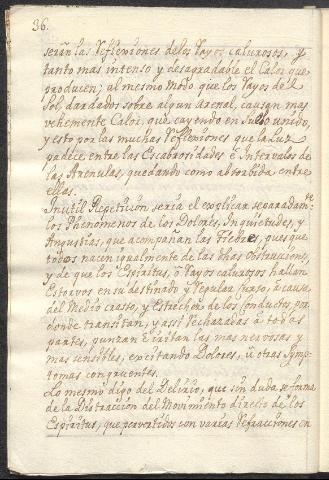 36.
serán las Reflexiones de los Rayos calurosos, y
tanto mas intenso y desagradable el Calor que
producen; al mismo modo que los Rayos del
Sol dardados sobre algun Arenal, causan mas
vehemente Calor, que cayendo en Suelo unido,
y esto por las muchas Reflexiones que la Luz
padece entre las Escabrosidades e Intervalos de
las Arenulas, quedando como absorbida entre
ellas.
Inutil Repeticion seria el explicar separadamte.
los Phenomenos de los Dolores, Inquietudes, y
Angustias, que acompañan las Fiebres, pues que
todos nacen igualmente de las dhas Obstrucciones,
y de que los Espiritus, ò Rayos calurosos hallen
Estorvos en su destinado y Regular Curso, à causa
del Medio crasso, y Estrechez de los Conductos, por
donde transitan, y assi rechazados à todas
partes, punzan è irritan las mas nerviosas y
mas sensibles, excitando Dolores, ù otras Symp-
tomas congruentes.
Lo mesmo digo del Delirio, que sin duda se forma
de la Distraccion del Movimiento directo de los
Espiritus, que pervertidos con varias Refracciones en